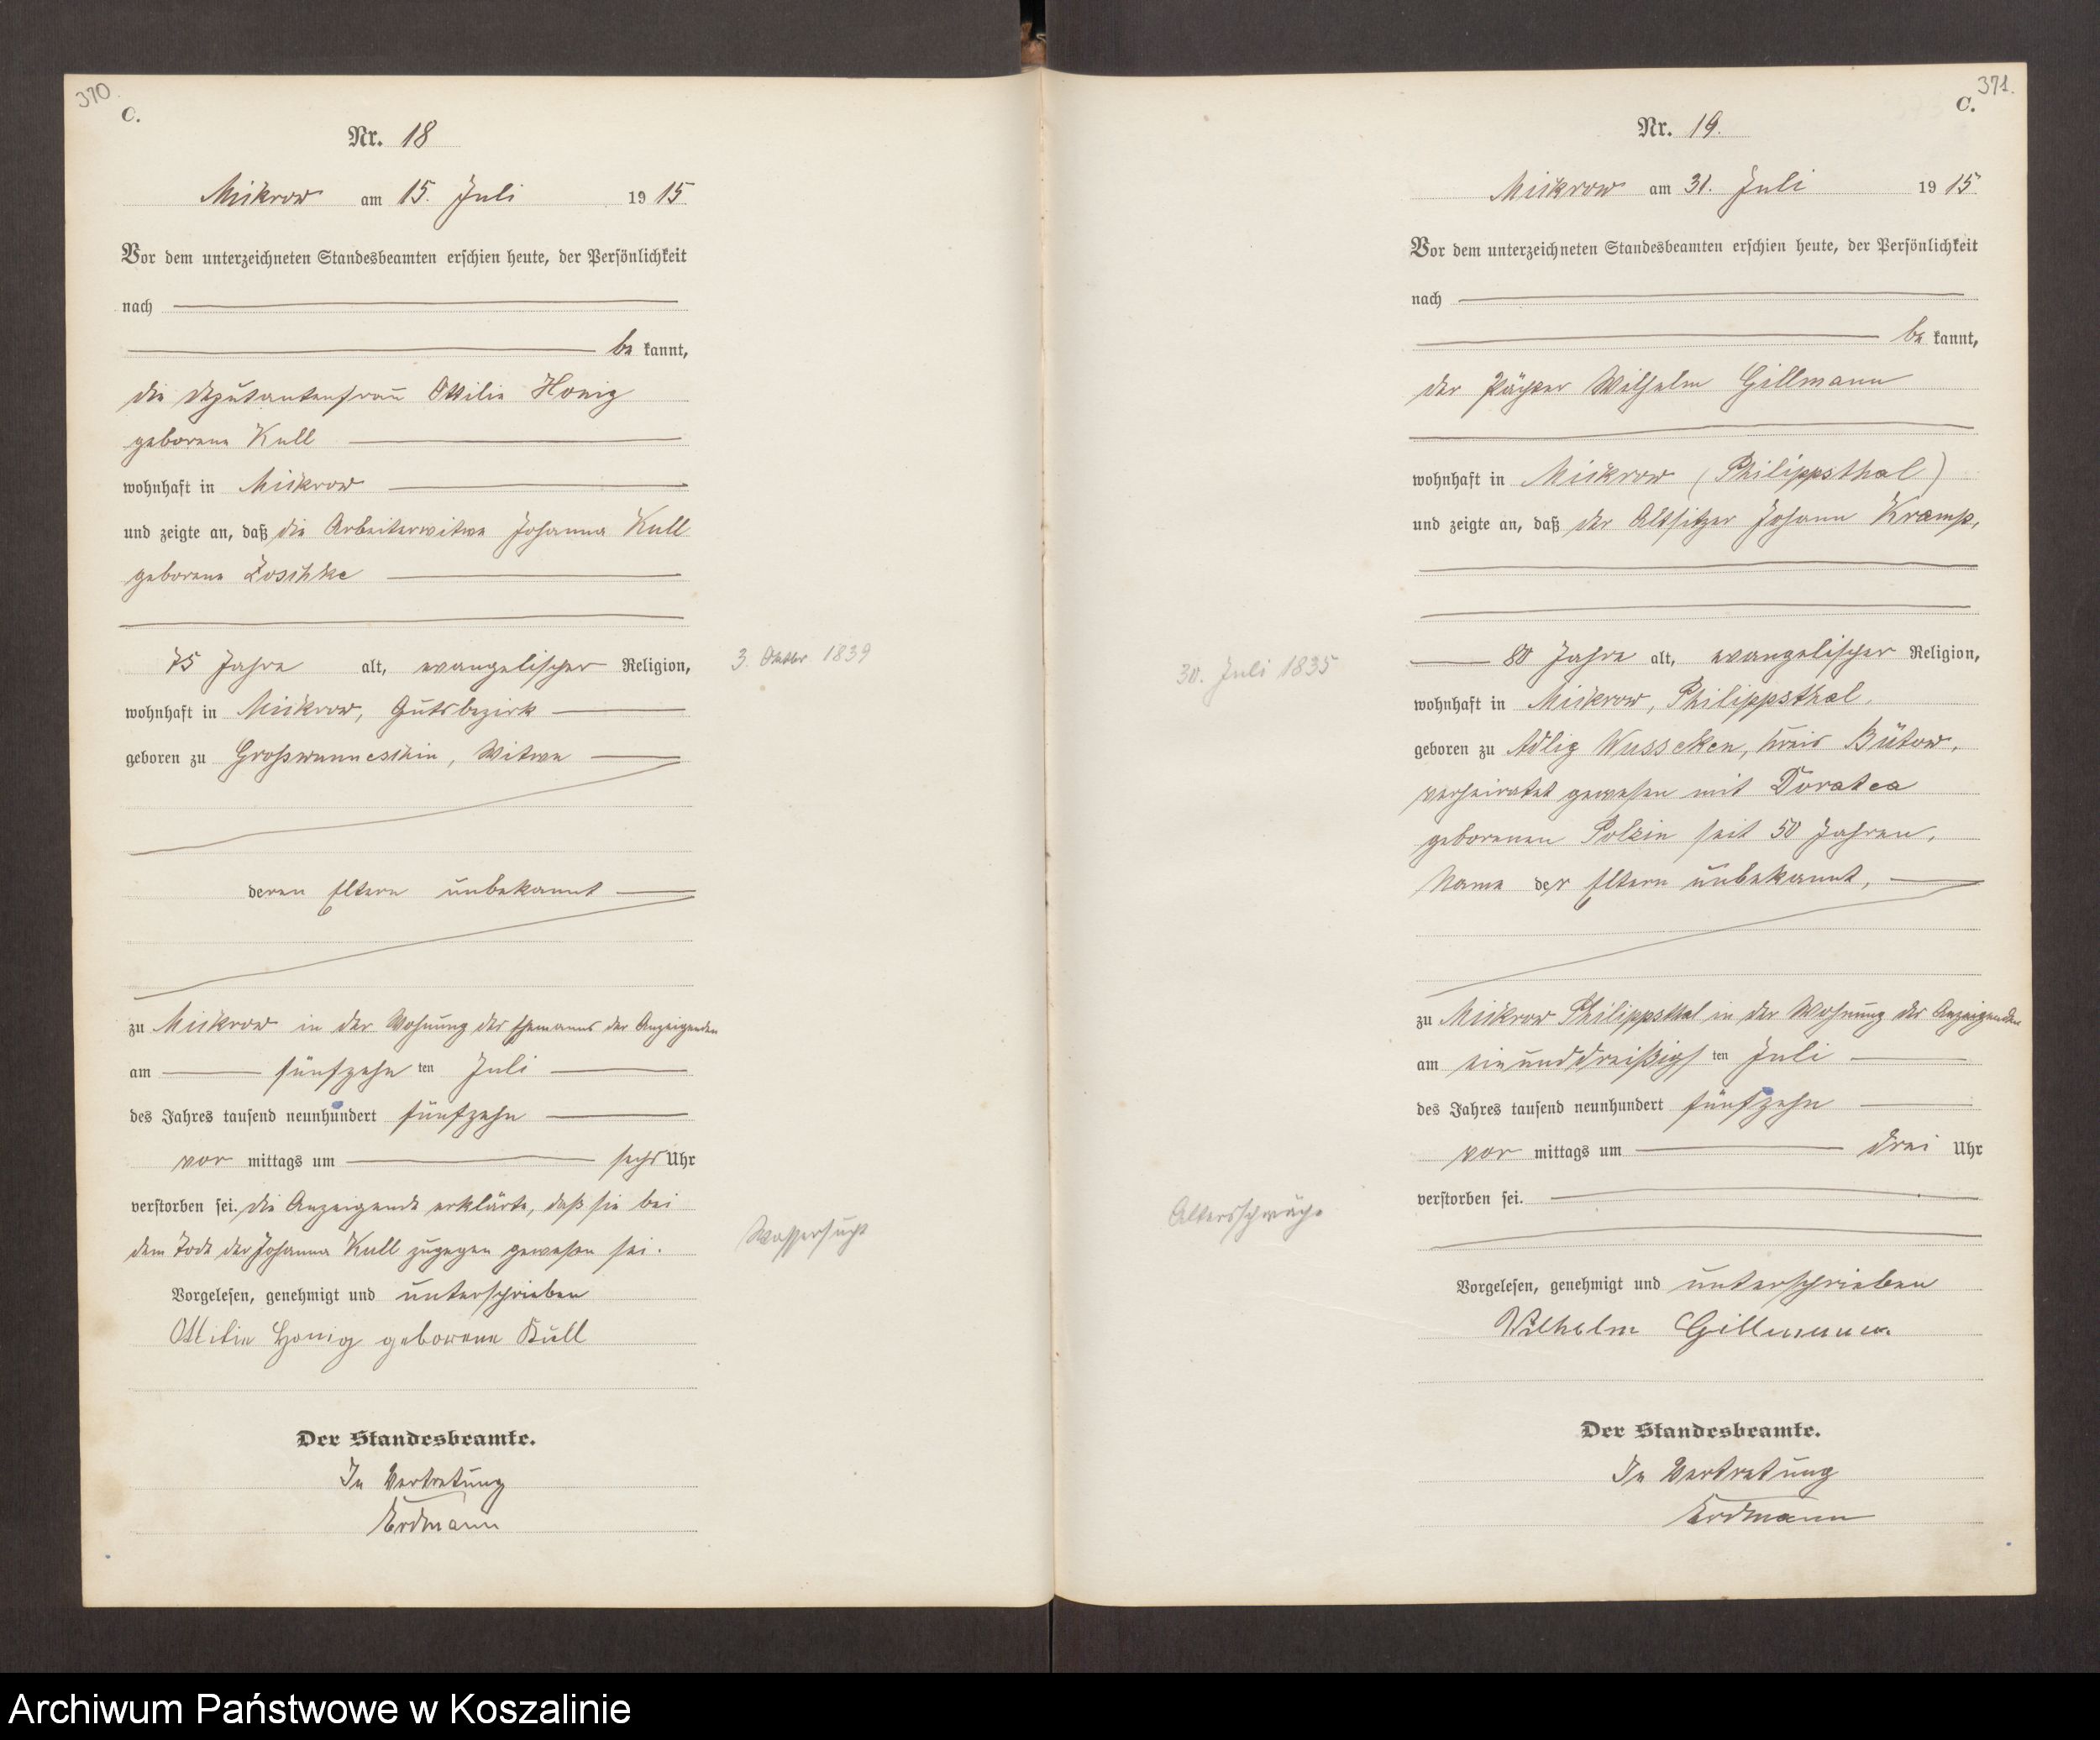 370.
C.
Nr. 18
Mickrow am 15. Juli 1915
Vor dem unterzeichneten Standesbeamten erschien heute, der Persönlichkeit
nach
be kannt,
die Deputantenfrau Ottilie Honig
geborene Kull
wohnhaft in Mickrow
und zeigte an, daß die Arbeiterwitwe Johanna Kull
geborene
75 Jahre alt, evangelischer Religion,
3. Oktober 1839
wohnhaft in Mickrow, Gutsbezirk
geboren zu Großwunneschin, Witwe
deren Eltern unbekannt
zu Mickrow in der Wohnung des Ehemanns der Anzeigenden
am fünfzehn ten Juli
des Jahres tausend neunhundert fünfzehn
vor mittags um sechs Uhr
verstorben sei. Die Anzeigende erklärte, daß sie bei
dem Tode der Johanna Kull zugegen gewesen sei.
Wassersucht
Vorgelesen, genehmigt und unterschrieben
Ottilie Honig geborene Kull
Der Standesbeamte.
In Vertretung
Erdmann
371.
C.
Nr. 19.
Mickrow am 31. Juli 1915.
Vor dem unterzeichneten Standesbeamten erschien heute, der Persönlichkeit
nach
be kannt,
der Pächter Wilhelm Gillmann
wohnhaft in Mickrow (Philippsthal)
und zeigte an, daß der Altsitzer Johann Kramp,
80 Jahre alt, evangelischer Religion,
30. Juli 1835
wohnhaft in Mickrow, Philippsthal.
geboren zu Adlig Wusseken, Kreis Bütow,
verheiratet gewesen mit Doratea
geborenen Polzin seit 50 Jahren,
Name der Eltern unbekannt,
zu Mickrow Philippsthal in der Wohnung des Anzeigenden
am einunddreißigs ten Juli
des Jahres tausend neunhundert fünfzehn
vor mittags um drei Uhr
verstorben sei.
Altersschwäche
Vorgelesen, genehmigt und unterschrieben
Wilhelm Gillmann.
Der Standesbeamte.
In Vertretung
Erdmann
Archiwum Państwowe w Koszalinie